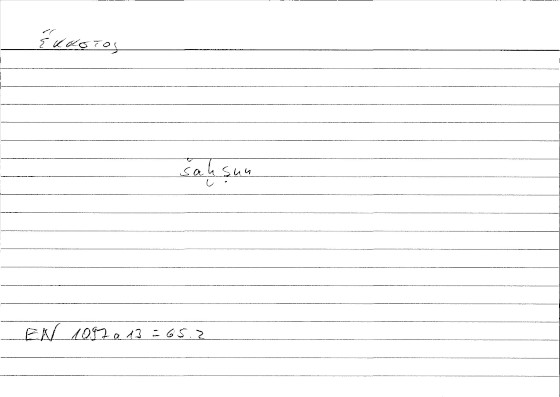 ἕκαστος
šaḫṣun
EN 1097a13 = 65.2